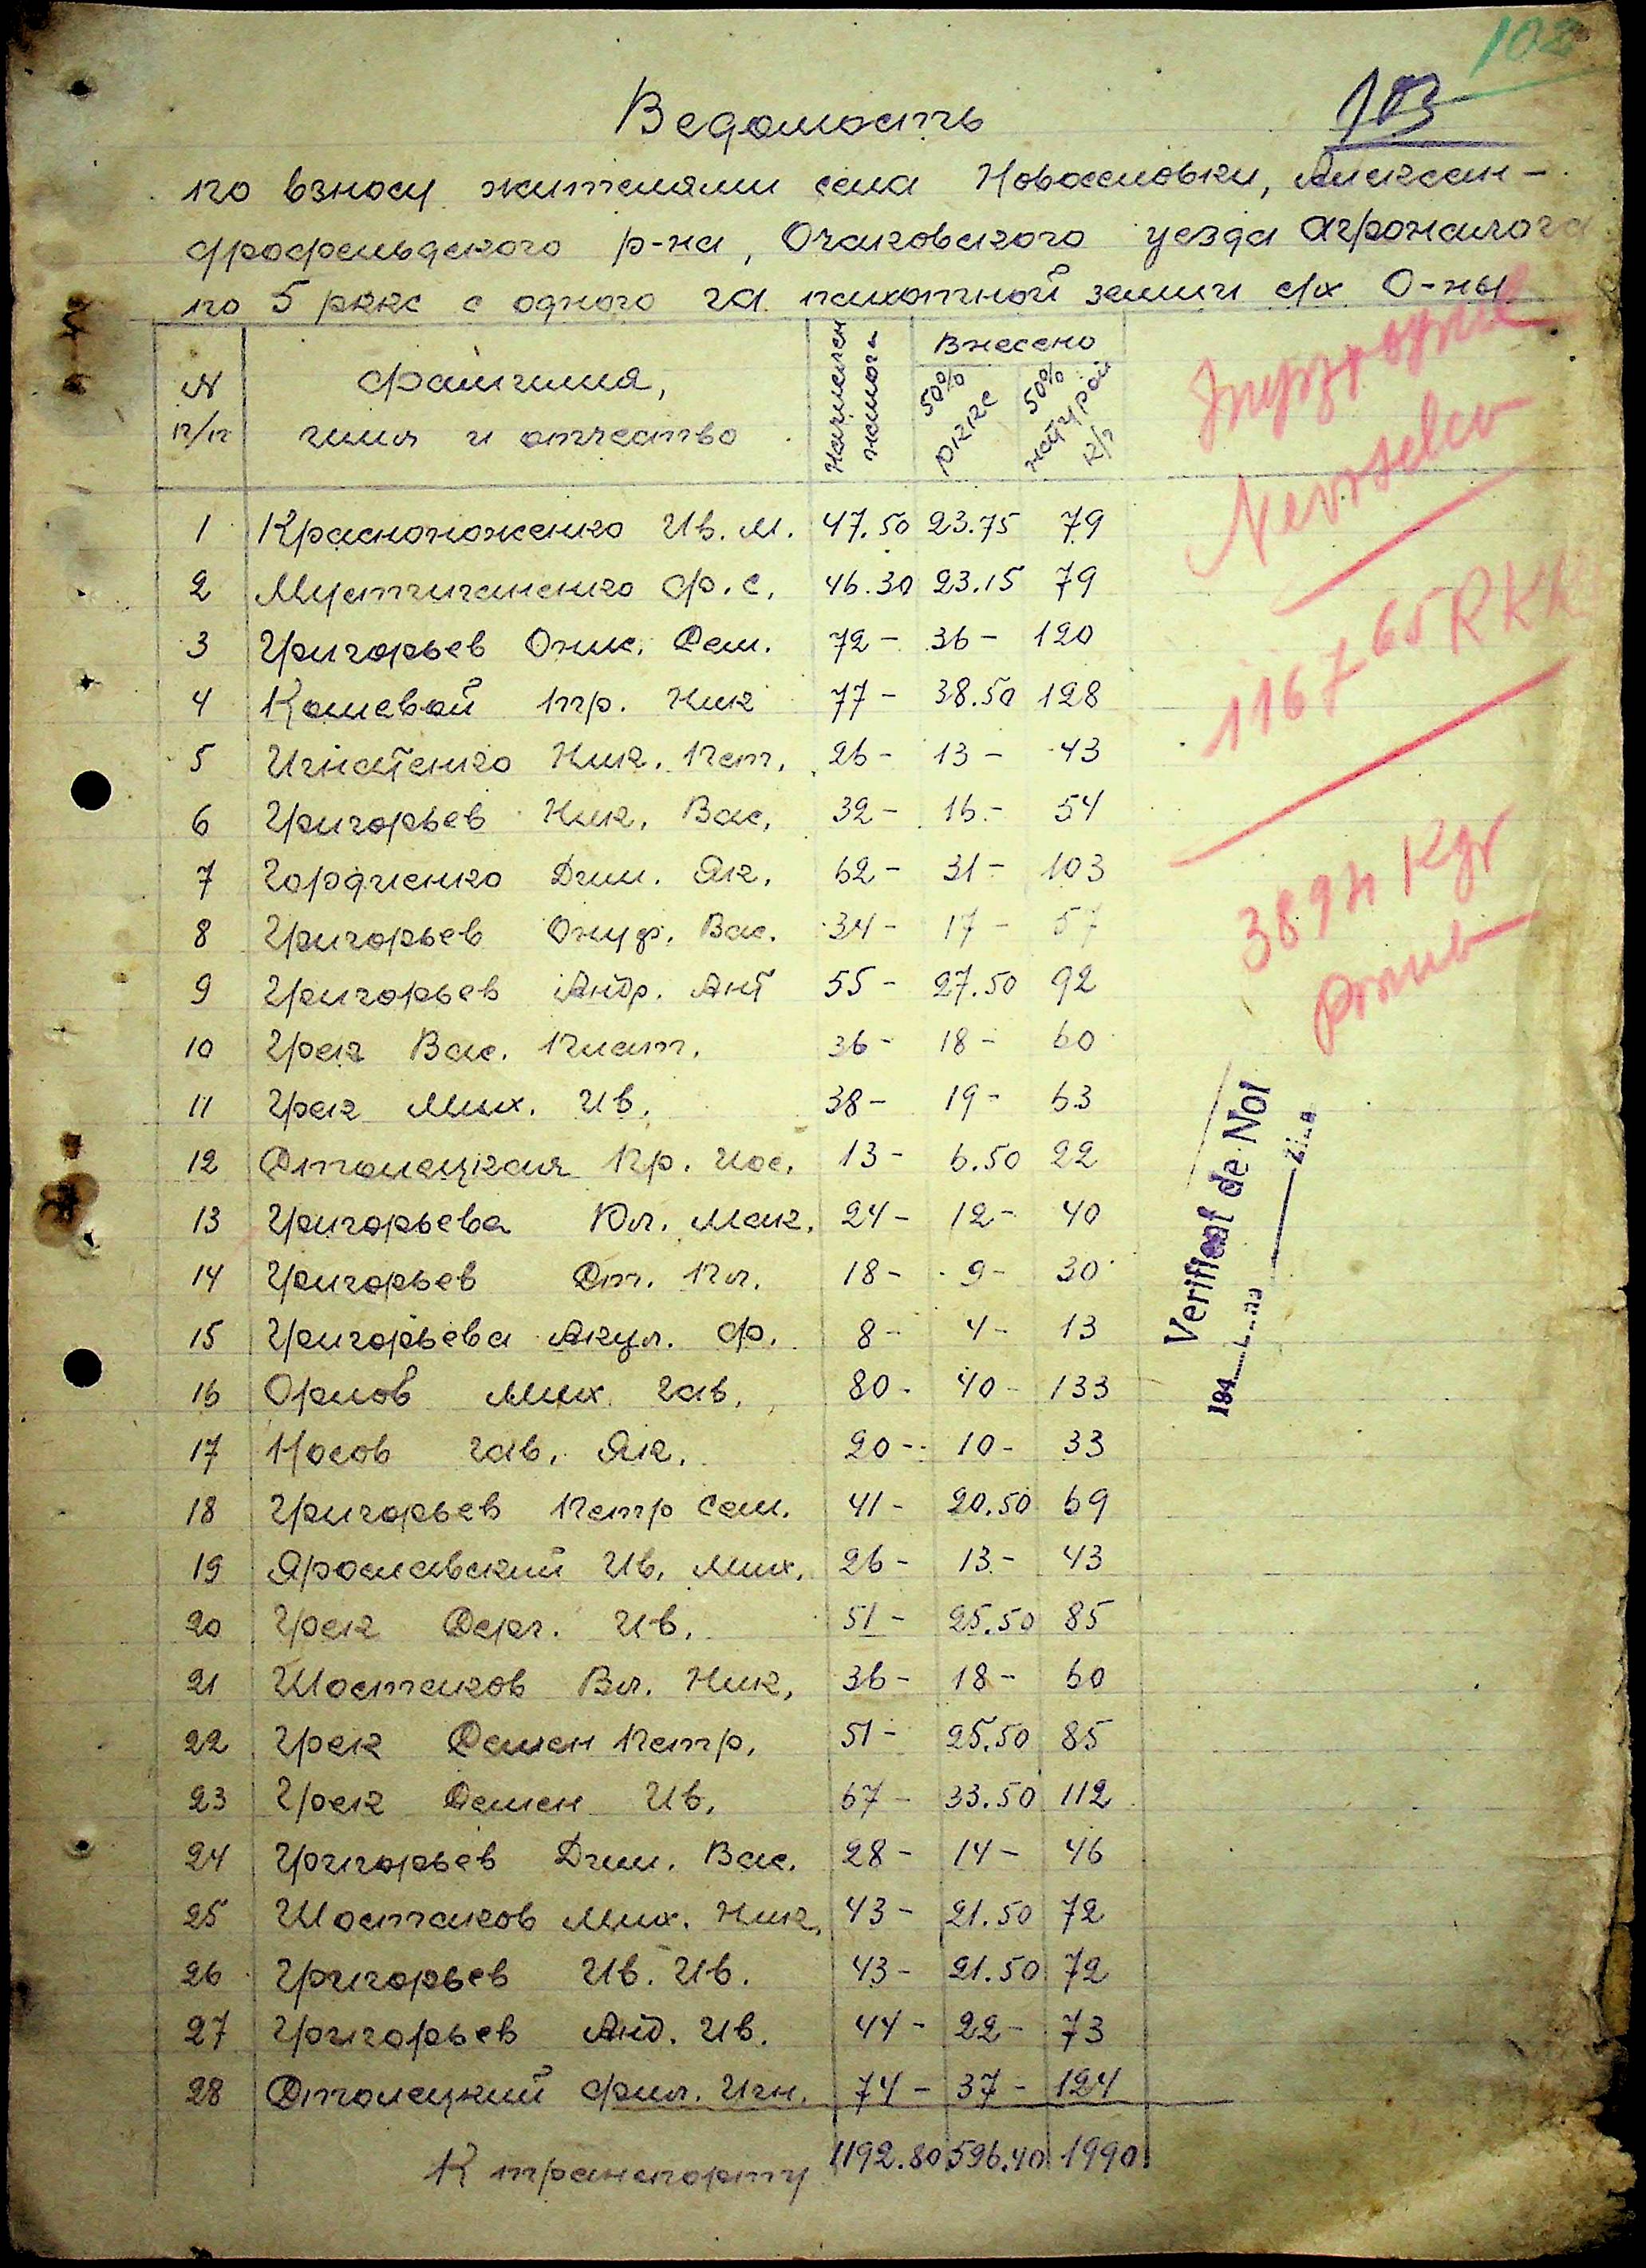 102
103
Ведомость
по взносу жителями села Новоселовки, Алексан-
дрофельдского р-на, Очаковского уезда агроналога
по 5 ркке с одного га пахотной земли с/х О-ны
N п/п
Фамилия, имя и отчество
Начислен налога
Внесено
50% ркке
50% натурой к/г
1 Краснопоженко Ив. М. 47.50 23.75 79
2 Мустиганенко Ф. С. 46.30 23.15 79
3 Григорьев Оник. Сем. 72- 36- 120
4 Кошевой Тр. Ник 77- 38.50 128
5 Игнатенко Ник. Пет. 26- 13- 43
6 Григорьев Ник. Вас. 32- 16- 54
7 Гордиенко Дим. Як. 62- 31- 103
8 Григорьев Онуф. Вас. 34- 17- 57
9 Григорьев Андр. Ант 55- 27.50 92
10 Грек Вас. Плат. 36- 18- 60
11 Грек Мих. Ив. 38- 19- 63
12 Столецкая Пр. Иос. 13- 6.50 22
13 Григорьева Юл. Мак. 24- 12- 40
14 Григорьев Ст. Пл. 18- 9- 30
15 Григорьева Акул. Ф. 8- 4- 13
16 Орлов Мих. Гав. 80- 40- 133
17 Носов Гав. Як. 20- 10- 33
18 Григорьев Петр Сем. 41- 20.50 69
19 Ярославский Ив. Мих. 26- 13- 43
20 Грек Серг. Ив. 51- 25.50 85
21 Шостаков Вл. Ник. 36- 18- 60
22 Грек Семен Петр. 51- 25.50 85
23 Грек Семен Ив. 67- 33.50 112
24 Григорьев Дим. Вас. 28- 14- 46
25 Шостаков Мих. Ник. 43- 21.50 72
26 Григорьев Ив. Ив. 43- 21.50 72
27 Григорьев Анд. Ив. 44- 22- 73
28 Столецкий Фил. Игн. 74- 37- 124
К транспорту 1192.80 596.40 1990
1167 65 RKK
3894 Kgr
Verificat de Noi
194 L-na Ziua